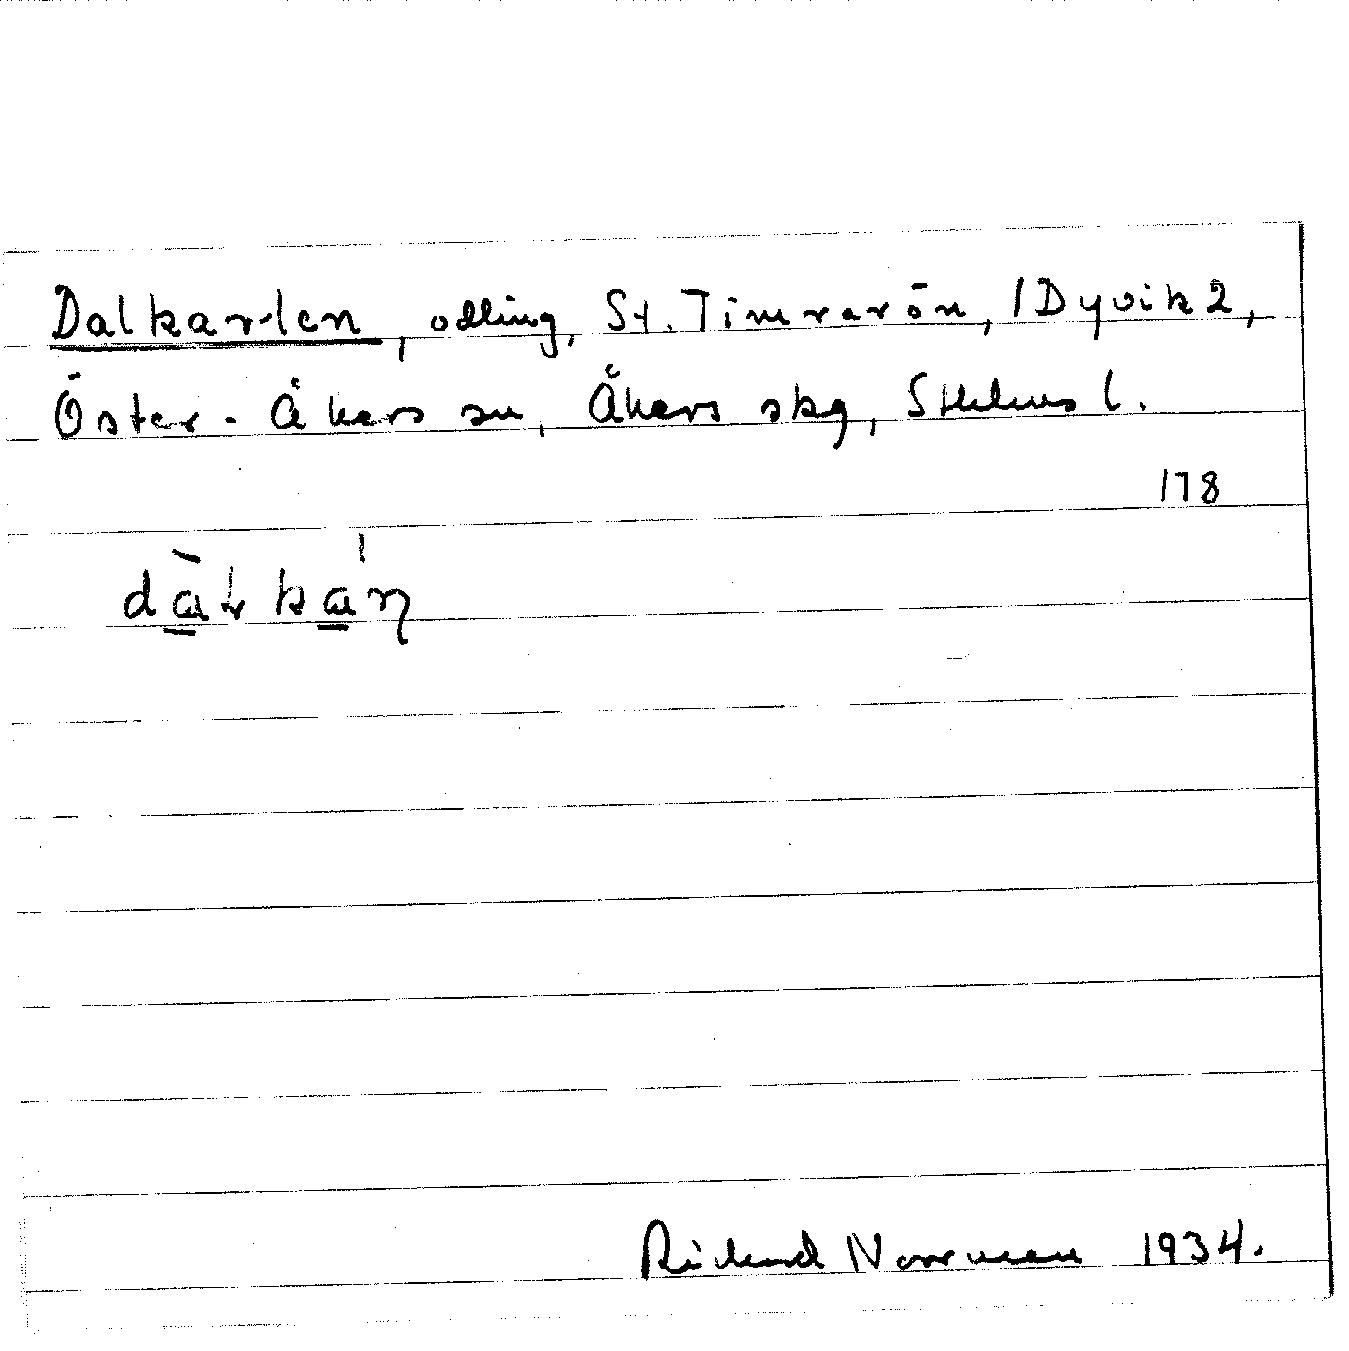 Dalkarlen, odling, St. Timrarön, /Dyvik 2,
Öster-Åkers sn, Åkers skg, Sthlms l.
178
dàłkáɳ
Rickard Norrman 1934.